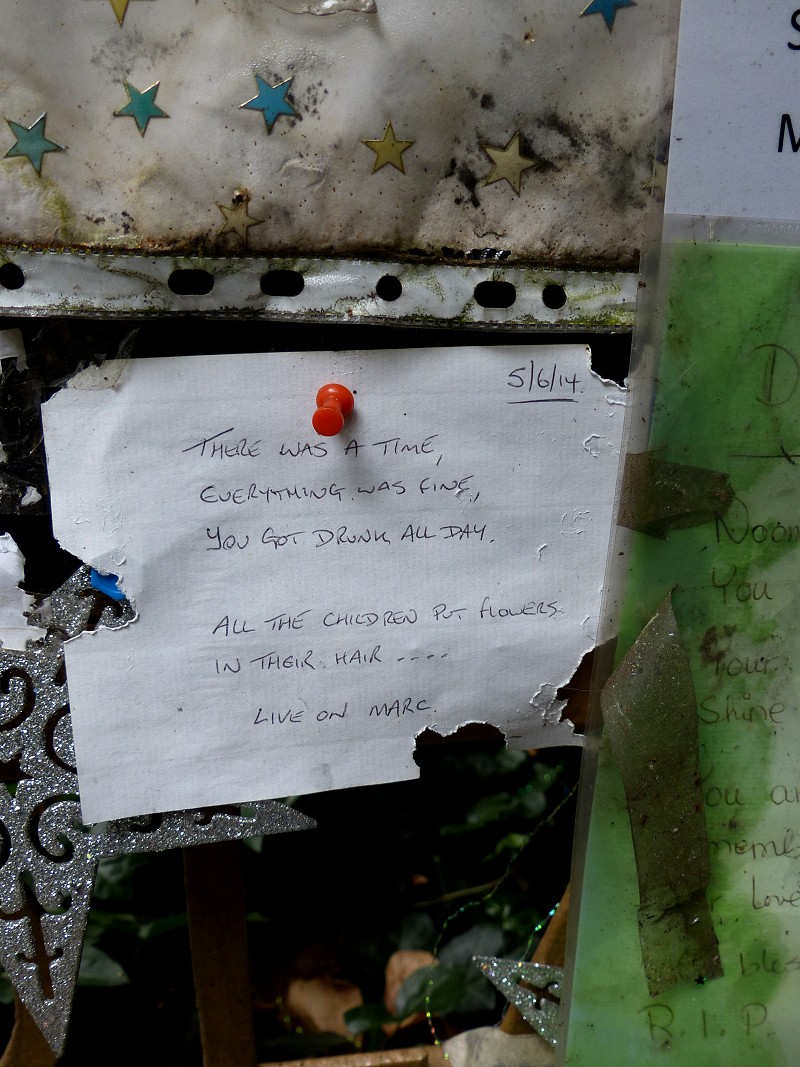 S
M
5/6/14
THERE WAS A TIME,
EVERYTHING WAS FINE,
YOU GOT DRUNK ALL DAY.
ALL THE CHILDREN PUT FLOWERS
IN THEIR HAIR ----
LIVE ON MARC.
D
Noon
You
Your
Shine
You ar
memb
Love
bles
R.I.P.